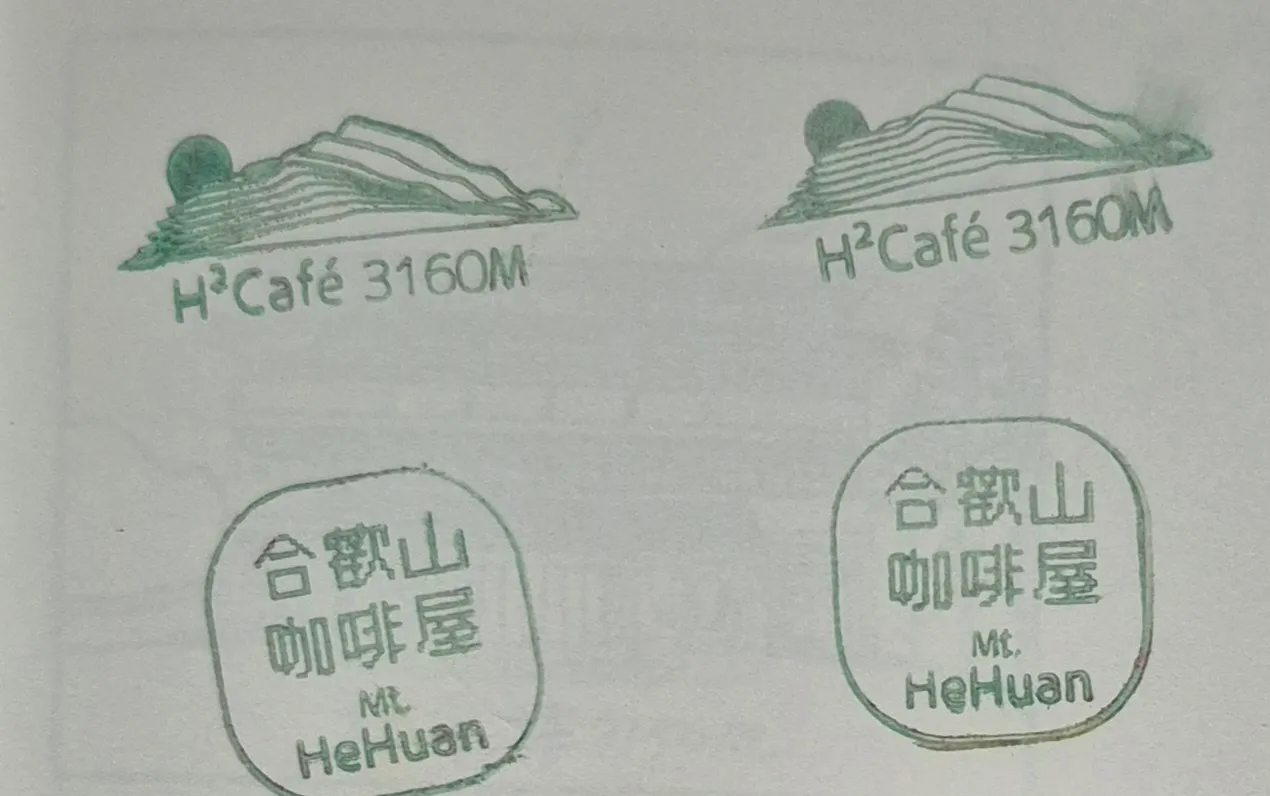 H²Café 3160M
H²Café 3160M
合歡山
咖啡屋
Mt.
HeHuan
合歡山
咖啡屋
Mt.
HeHuan